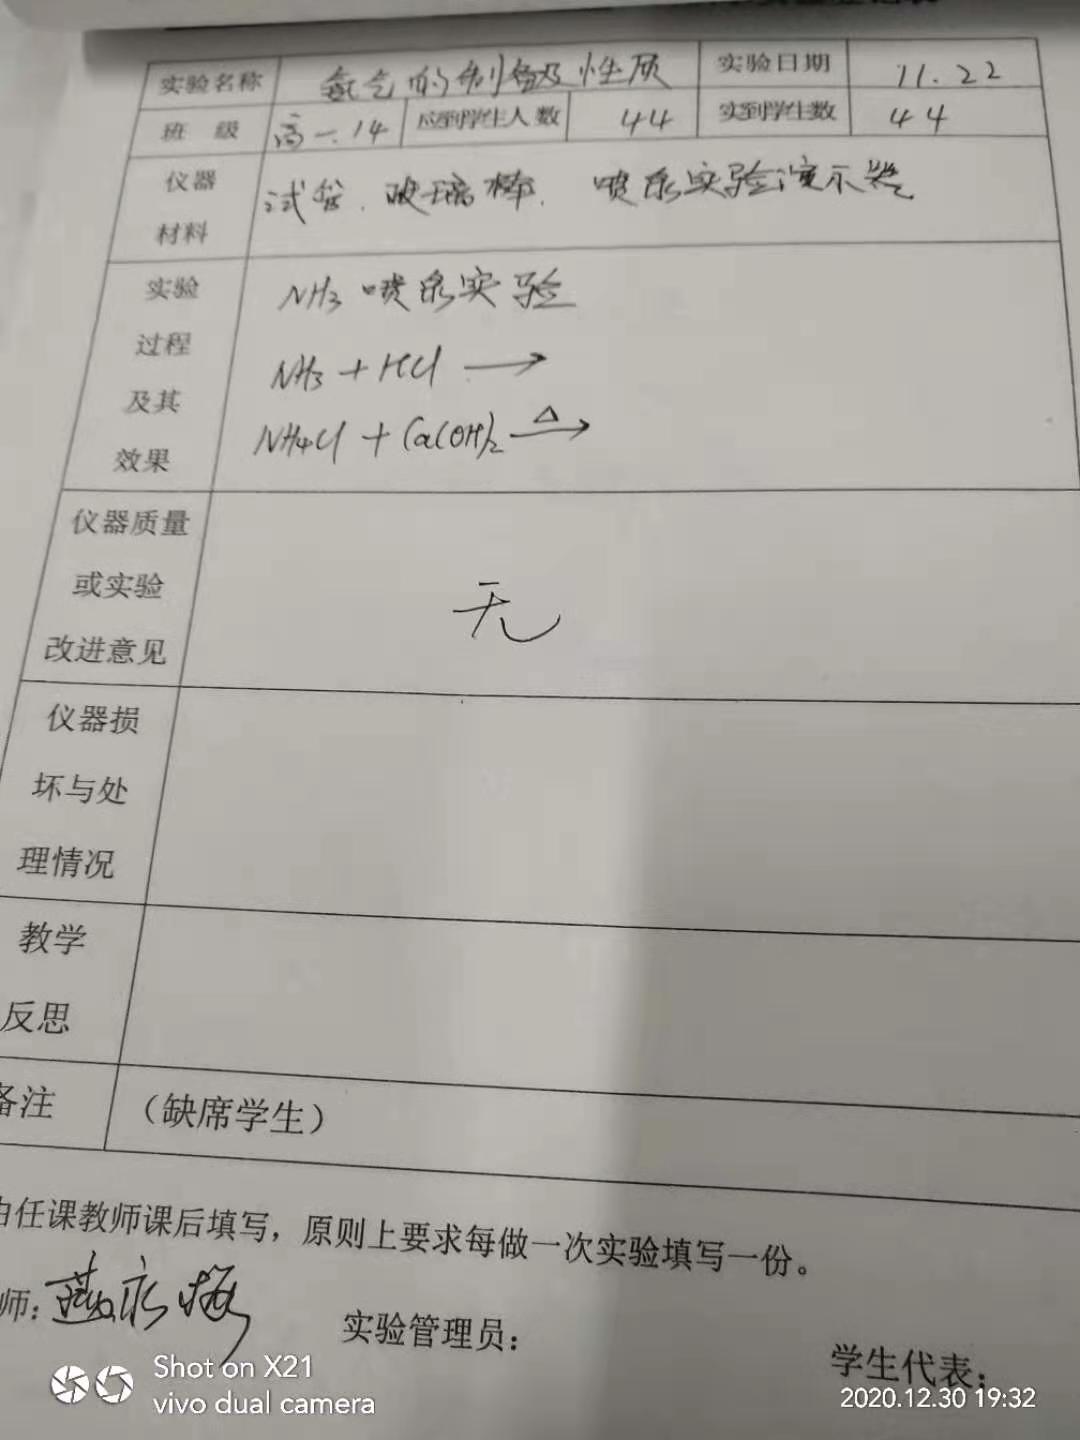 实验名称 氨气的制备及性质 实验日期 11.22
班 级 高一.14 应到学生人数 44 实到学生数 44
仪器
材料
试管、玻璃棒、喷泉实验演示器
实验
过程
及其
效果
NH3 喷泉实验
NH3 + HCl →
NH4Cl + Ca(OH)2 △→
仪器质量
或实验
改进意见
无
仪器损
坏与处
理情况
教学
反思
备注 (缺席学生)
由任课教师课后填写，原则上要求每做一次实验填写一份。
师: 实验管理员: 学生代表:
Shot on X21
vivo dual camera
2020.12.30 19:32